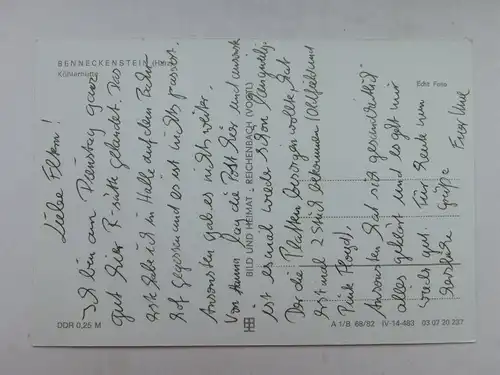 BENNECKENSTEIN (Harz)
Köhlerhütte
Echt Foto
Liebe Eltern!
Ich bin am Dienstag ganz
gut hier gelandet. Das
erste habe ich in Halle auf dem Bahn-
hof gegessen und es ist nichts passiert.
Ansonsten gab es nichts weiter.
Von lag die Post hier und
ist es mal wieder schon
Der die Platten besorgen wollte, hat
erst mal 2 Stück bekommen (Oldfield und
Pink Floyd).
Ansonsten hat sich gesundheitlich
alles geklärt und es geht mir
wieder gut. Für heute nun
herzliche Grüße
Eure
BILD UND HEIMAT · REICHENBACH (VOGTL)
DDR 0,25 M
A 1/B 68/82 IV-14-483 03 07 20 237